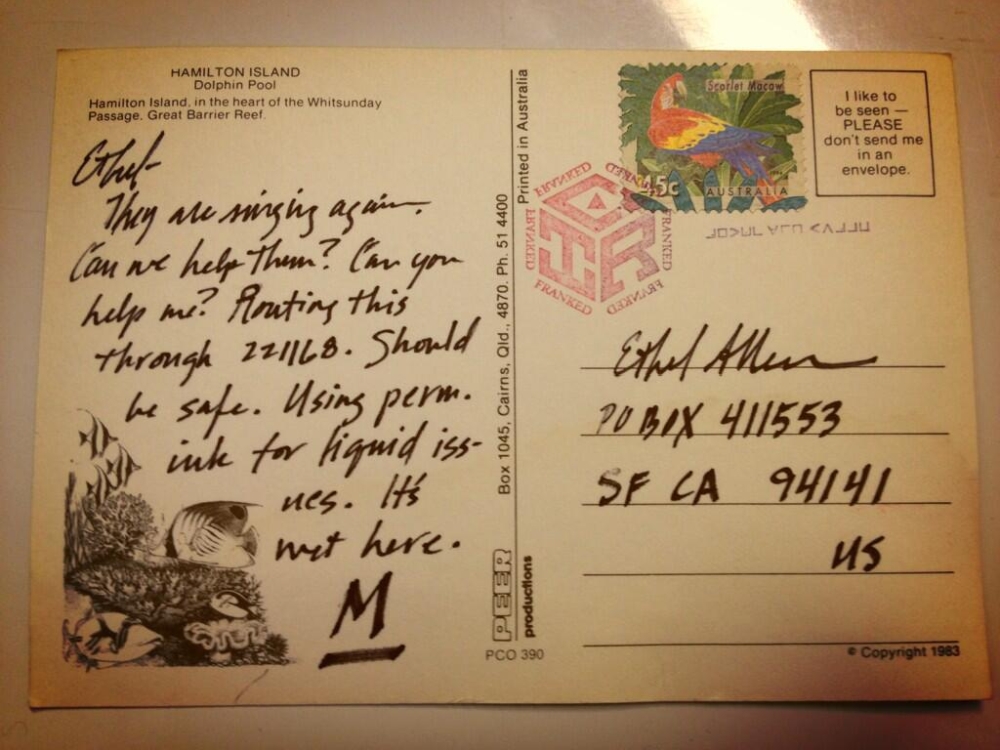 HAMILTON ISLAND
Dolphin Pool
Hamilton Island, in the heart of the Whitsunday
Passage. Great Barrier Reef.
Ethel-
They are singing again.
Can we help them? Can you
help me? Routing this
through 221168. Should
be safe. Using perm.
ink for liquid iss-
ues. It's
wet here.
M
Printed in Australia
Box 1045, Cairns, Qld., 4870. Ph. 51 4400
PEER
productions
PCO 390
Scarlet Macaw
45c
AUSTRALIA
I like to
be seen —
PLEASE
don't send me
in an
envelope.
FRANKED
FRANKED
FRANKED
FRANKED
FRANKED
FRANKED
Ethel Allen
PO BOX 411553
SF CA 94141
US
© Copyright 1983